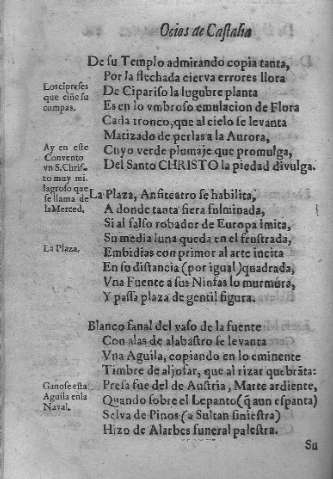 Ocios de Castalia
De su Templo admirando copia tanta,
Por la flechada cierva errores llora
De Cipariso la lugubre planta
Es en lo vmbroso emulacion de Flora
Cada tronco, que al cielo se levanta
Matizado de perlas a la Aurora,
Cuyo verde plomaje que promulga,
Del Santo CHRISTO la piedad divulga.
Los cipreses
que ciñe su
compas.
Ay en este
Convento
vn S. Chris-
to muy mi
lagroso que
se llama de
la Merced.
La Plaza, Anfiteatro se habilita,
A donde tanta fiera fulminada,
Si al falso robador de Europa imita,
Su media luna queda en el frustrada,
Embidias con primor al arte incita
En so distancia (por igual) quadrada,
Vna Fuente a sus Ninfas lo murmura,
Y passa plaza de gentil figura.
La Plaza.
Blanco fanal del vaso de la fuente
Con alas de alabastro se levanta
Vna Aguila, copiando en lo eminente
Timbre de aljofar, que al rizar quebrāta:
Presa fue del de Austria, Marte ardiente,
Quando sobre el Lepanto (q̄ aun espanta)
Selva de Pinos (a Sultan siniestra)
Hizo de Alarbes funeral palestra.
Ganose esta
Aguila en la
Naval.
Su